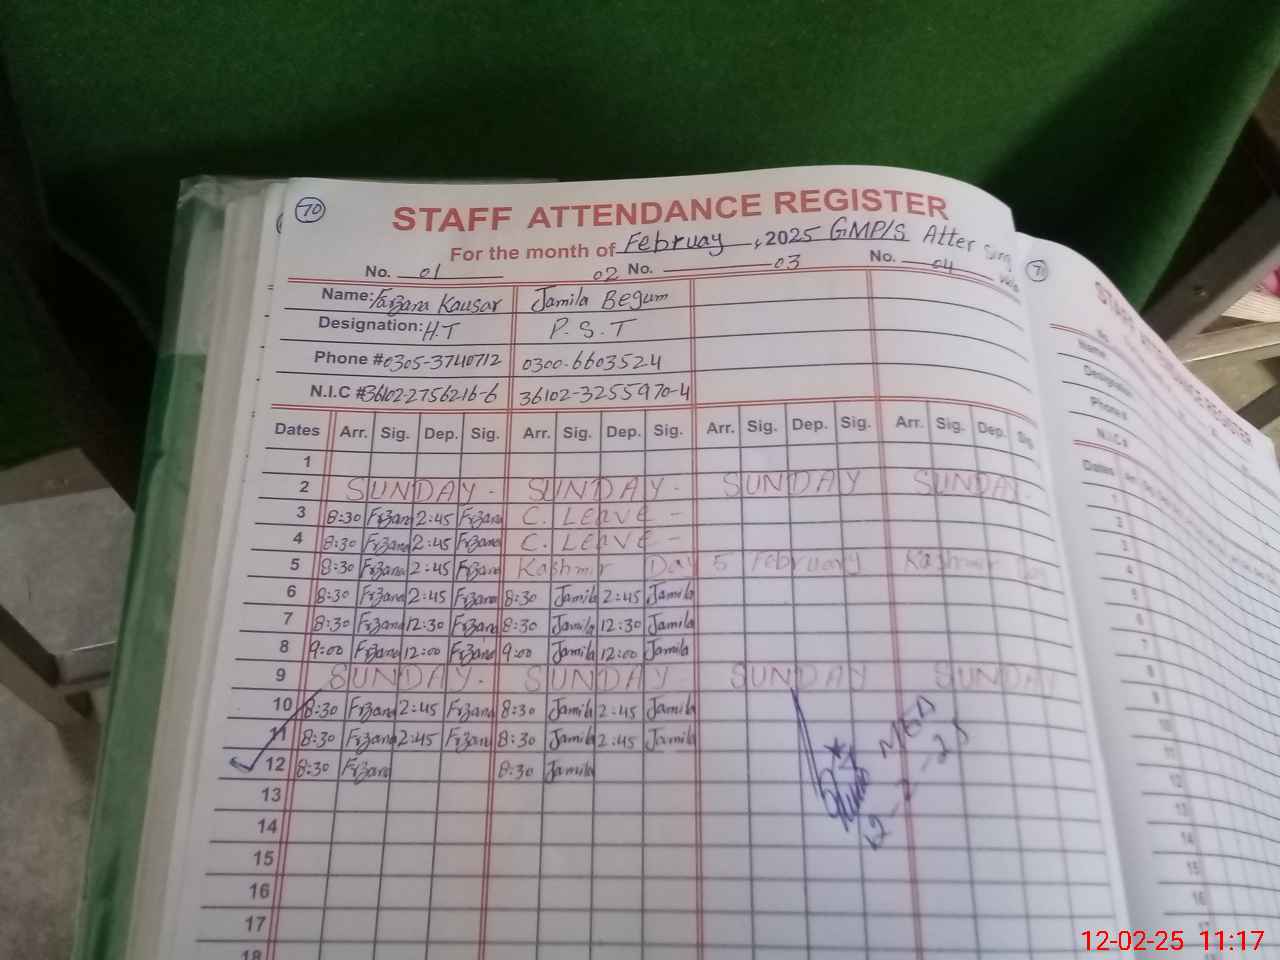 70
STAFF ATTENDANCE REGISTER
For the month of February, 2025 GMP/S Atter Sing
No. 01 02 No. 03 No. 04
Name: Farzana Kausar Jamila Begum
Designation: H.T P.S.T
Phone # 0305-3740712 0300-6603524
N.I.C # 36102-2756216-6 36102-3255970-4
Dates Arr. Sig. Dep. Sig. Arr. Sig. Dep. Sig. Arr. Sig. Dep. Sig. Arr. Sig. Dep. Sig.
1
2 SUNDAY. SUNDAY. SUNDAY SUNDAY.
3 8:30 Frzana 2:45 Frzana C. LEAVE -
4 8:30 Frzana 2:45 Frzana C. LEAVE -
5 8:30 Frzana 2:45 Frzana Kashmir Day 5 February Kashmir Day
6 8:30 Frzana 2:45 Frzana 8:30 Jamila 2:45 Jamila
7 8:30 Frzana 12:30 Frzana 8:30 Jamila 12:30 Jamila
8 9:00 Frzana 12:00 Frzana 9:00 Jamila 12:00 Jamila
9 SUNDAY. SUNDAY SUNDAY SUNDAY
10 8:30 Frzana 2:45 Frzana 8:30 Jamila 2:45 Jamila
11 8:30 Frzana 2:45 Frzana 8:30 Jamila 2:45 Jamila
12 8:30 Frzana 8:30 Jamila
13
14
15
16
17
18
MEA
12-2-25
71
STAFF ATTENDANCE REGISTER
No.
Name
Designation
Phone #
N.I.C #
Dates
1
2
3
4
5
6
7
8
9
10
11
12
13
14
15
16
17
12-02-25 11:17